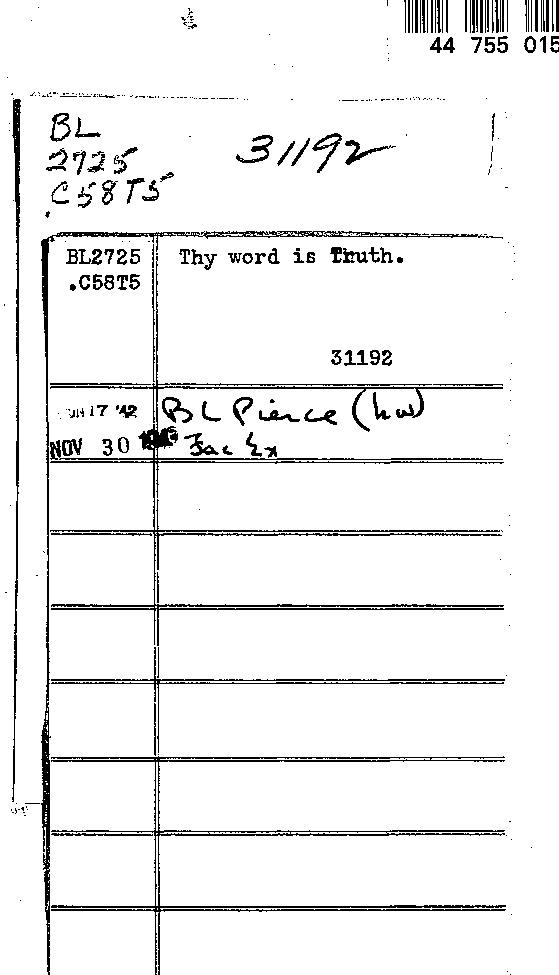 44 755 015
BL
2725
.C58T5
31192
BL2725
.C58T5
Thy word is Truth.
31192
JUN 17 '42 BL Pierce (hw)
NOV 30 Fac Ex